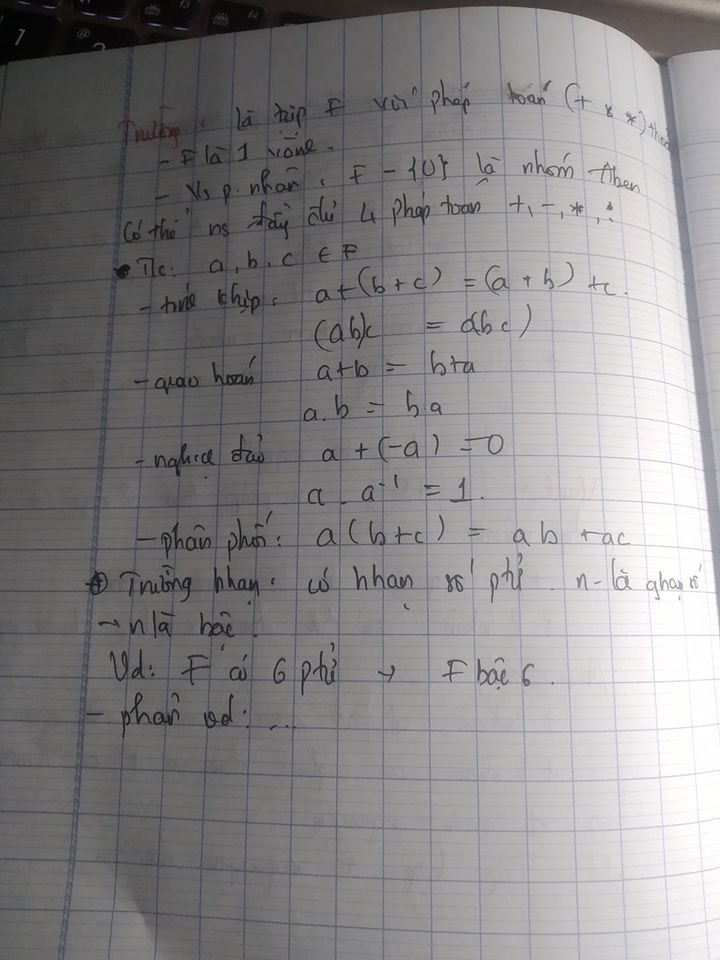 Trường: là tập F với phép toán (+ & *) thoả
- F là 1 vòng.
- Vs p. nhân: F - {0} là nhóm Aben
Có thể ns đầy đủ 4 phép toán +, -, *, :
• T/c: a, b, c ∈ F
- kết hợp: a+(b+c) = (a+b)+c.
(ab)c = a(bc)
- giao hoán a+b = b+a
a.b = ba
- nghịch đảo a + (-a) = 0
a . a⁻¹ = 1.
- phân phối: a(b+c) = ab + ac
Trường hhạn: có hhạn số ptử. n - là
→ n là bậc.
Vd: F có 6 ptử → F bậc 6.
- phần vd: ...